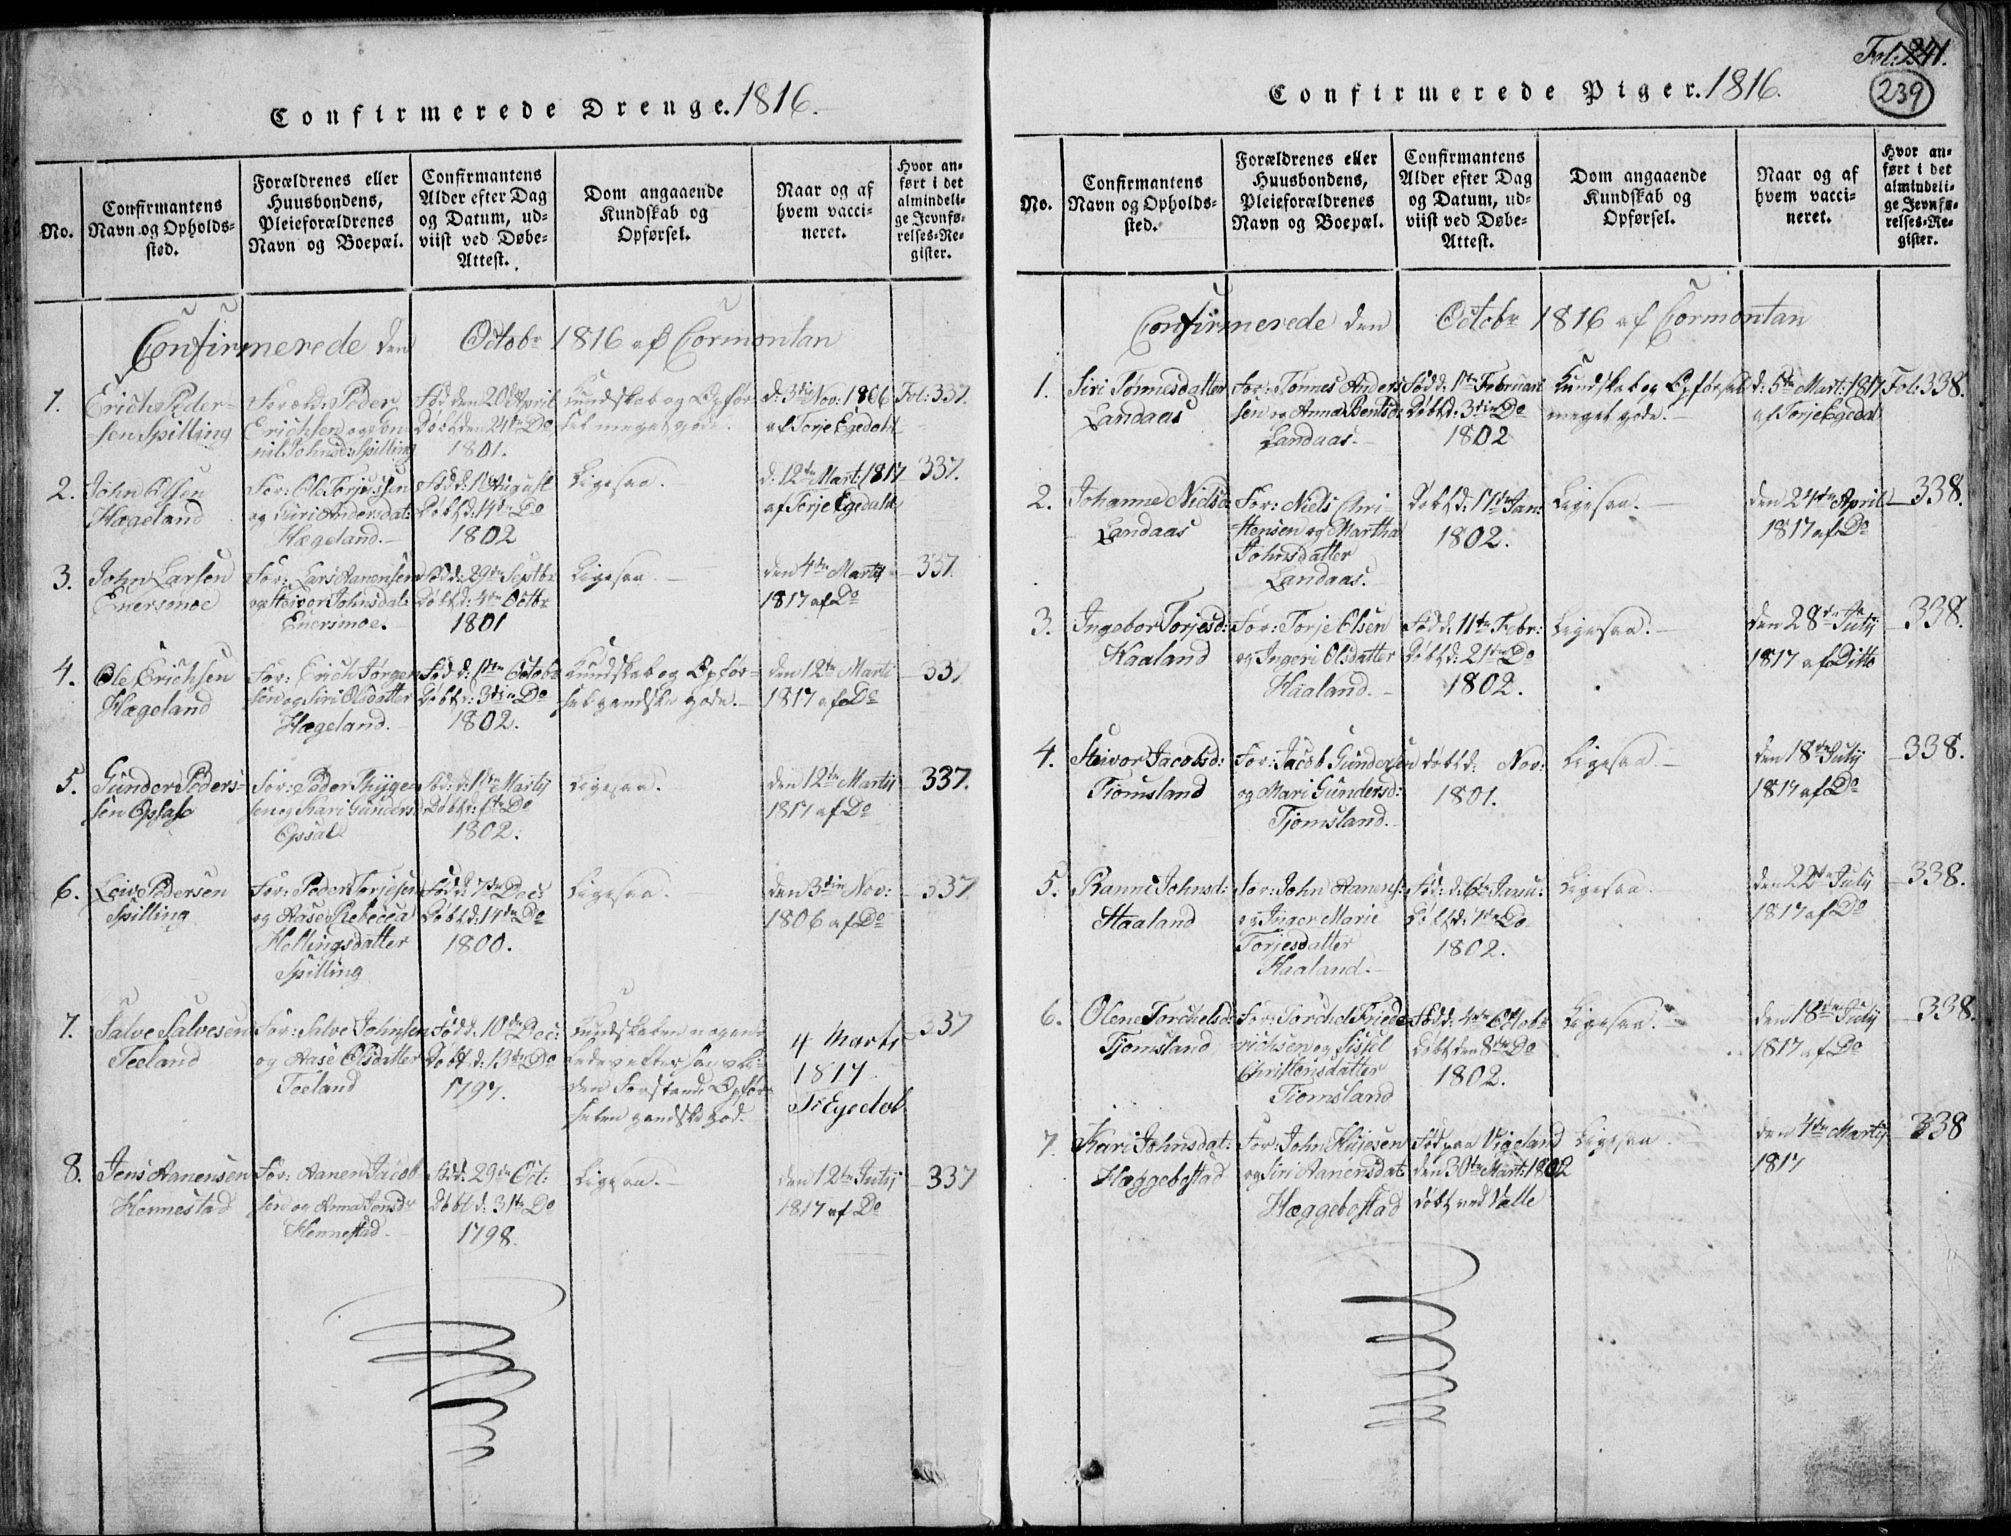 Confirmerede Drenge. 1816.
No.
Confirmantens
Navn og Opholds-
sted.
Forældrenes eller
Huusbondens,
Pleieforældrenes
Navn og Boepæl.
Confirmantens
Alder efter Dag
og Datum, ud-
viist ved Døbe-
Attest.
Dom angaaende
Kundskab og
Opførsel.
Naar og af
hvem vacci-
neret.
Hvor an-
ført i det
almindeli-
ge Jevnfø-
relses-Re-
gister.
Confirmerede den Octobr 1816 af Cormontan
1.
Erich Peder-
sen Spilling
Foræld: Peder
Erichsen og
Johnsd: Spilling
Fød den 20de April
Døbt den 24de Do
1801.
Kundskab og Opfør-
sel meget gode.
d: 3die Nov: 1806
af Torje Egedahl
Fol: 337.
2.
John Olsen
Hægeland
For: Ole Torjussen
og Siri Andersdat:
Hægeland.
Fød d: 1 August
Døbt d: 14de Do
1802
Ligesaa.
d: 12te Mart: 1817
af Torje Egedahl
337.
3.
John Larsen
Enersmoe
For: Lars Aanensen
og Heivor Johnsdat:
Enersmoe.
Fød d: 29de Septbr
Døbt d: 4de Octbr
1801
Ligesaa.
den 4de Martij
1817 af Do
337.
4.
Ole Erichsen
Hægeland
For: Erich Jørgen-
sen og Siri Olsdatter
Hægeland.
Fød d: 1ste Octobr
Døbt d: 3die Do
1802.
Kundskab og Opfør-
sel gandske gode.
den 12te Marti
1817 af Do
337
5.
Gunder Peders-
sen Opsahl
For: Peder Thyge-
sen og Kari Gunders:
Opsal
Fød: d: 1ste Martij
Døbt d: Do
1802.
Ligesaa.
den 12te Martij
1817 af Do
337.
6.
Leive Pedersen
Spilling
For: Peder Torjesen
og Aase Rebecca
Hellingsdatter
Spilling
Fød d: 7de Dec:
Døbt d: 14de Do
1800.
Ligesaa.
den 3die Nov:
1806 af Do
337.
7.
Salve Salvesen
Teeland
For: Salve Johnsen
og Aase Olsdatter
Teeland
Fød d. 10de Dec:
Døbt d: 13de Do
1797.
Kundskaben nogen-
ledes efter
den Forstand, Opfør-
selen gandske god.
4 Marts
1817
T: Egedal
337
8.
Jens Aanensen
Hennestad
For: Aanen Jacob-
sen og Anna Jensdr
Hennestad
Fød: 29de Oct:
Døbt d: 31te Do
1798.
Ligesaa.
den 12te Julij
1817 af Do
337
Fol: 241.
239
Confirmerede Piger. 1816.
No.
Confirmantens
Navn og Opholds-
sted.
Forældrenes eller
Huusbondens,
Pleieforældrenes
Navn og Boepæl.
Confirmantens
Alder efter Dag
og Datum, ud-
viist ved Døbe-
Attest.
Dom angaaende
Kundskab og
Opførsel.
Naar og af
hvem vacci-
neret.
Hvor an-
ført i det
almindeli-
ge Jevnfø-
relses-Re-
gister.
Confirmerede den Octobr 1816 af Cormontan
1.
Siri Tønnesdatter
Landaas
For: Tønnes Anders-
sen og Anna Bentsd:
Landaas.
Fød d: 1ste Februari
Døbt d: 3die Do
1802
Kundskab og Opførsel
meget gode.
d: 5te Mart: 1817
af Torje Egedal
Fol: 338.
2.
Johanne Nielsd:
Landaas
For: Niels Chri-
stensen og Martha
Johnsdatter
Landaas.
Døbt d: 17de Jan:
1802.
Ligesaa.
den 24de April
1817 af Do
338.
3.
Ingebor Torjesd:
Haaland
For: Torje Olsen
og Ingeri Olsdatter
Haaland.
Fød d: 11te Febr:
Døbt d: 21de Do
1802.
Ligesaa.
den 28de Julij
1817 af Ditto
338.
4.
Heivor Jacobsd:
Tiomsland
For: Jacob Gundersen
og Mari Gundersd:
Tjomsland.
Døbt d: Nov:
1801.
Ligesaa.
den 18de Julij
1817 af Do
338.
5.
Ranni Johnsd:
Haaland
For: John Aanens:
og Inger Marie
Torjesdatter
Haaland.
Fød: d: 6te Janu:
Døbt d: 7de Do
1802.
Ligesaa.
den 22de Julij
1817 af Do
338.
6.
Olene Torchelsd:
Tjomsland
For: Torchel Fried-
richsen og Sissel
Christensdatter
Tiomsland
Fød d: 4de Octobr
Døbt den 8de Do
1802.
Ligesaa.
den 18de Julij
1817 af Do
338.
7.
Kari Johnsdat:
Hæggebostad
For: John
og Siri Aanensdat
Hæggebostad
Fød paa Vigeland
den 30te Mart: 1802
døbt ved Valle
Ligesaa
den 4de Martij
1817
338